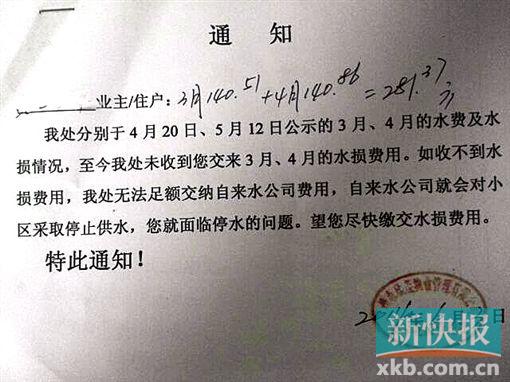 通 知
业主/住户：3月140.51+4月140.86=281.37元
我处分别于4月20日、5月12日公示的3月、4月的水费及水
损情况，至今我处未收到您交来3月、4月的水损费用。如收不到水
损费用，我处无法足额交纳自来水公司费用，自来水公司就会对小
区采取停止供水，您就面临停水的问题。望您尽快缴交水损费用。
特此通知！
日
新快报
xkb.com.cn